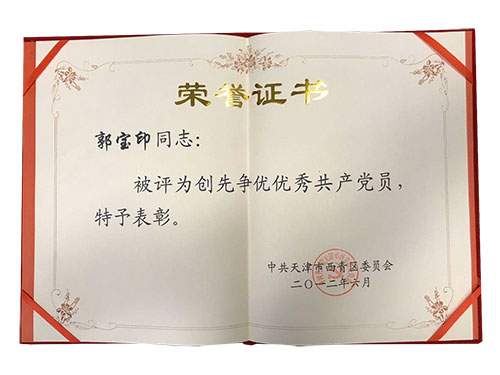 荣誉证书
郭宝印同志：
被评为创先争优优秀共产党员，
特予表彰。
中共天津市西青区委员会
二〇一二年六月